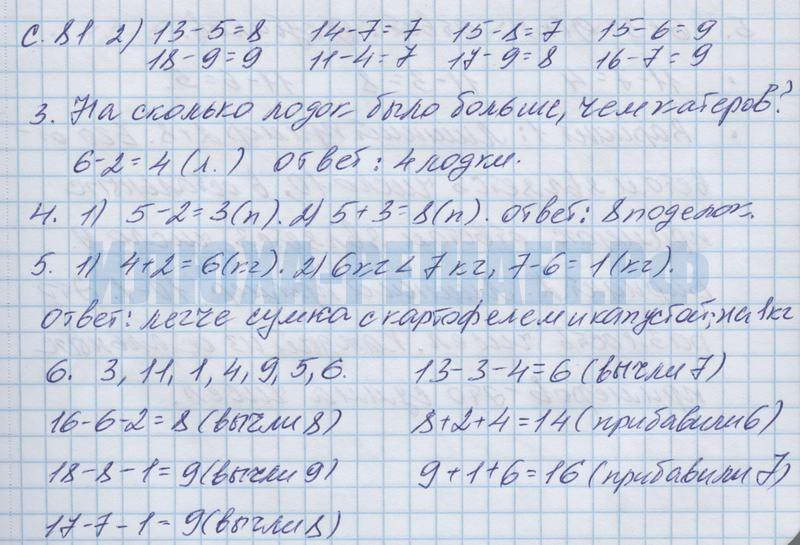 с. 81 2) 13-5=8 14-7=7 15-8=7 15-6=9
18-9=9 11-4=7 17-9=8 16-7=9
3. На сколько лодок было больше, чем катеров?
6-2=4 (л.) ответ: 4 лодки.
4. 1) 5-2=3(п). 2) 5+3=8(п). ответ: 8 поделок.
5. 1) 4+2=6(кг). 2) 6кг<7кг, 7-6=1(кг).
ответ: легче сумка с картофелем и капустой; на 1кг
6. 3, 11, 1, 4, 9, 5, 6. 13-3-4=6 (вычли 7)
16-6-2=8 (вычли 8) 8+2+4=14 (прибавили 6)
18-8-1=9(вычли 9) 9+1+6=16 (прибавили 7)
17-7-1=9(вычли 8)